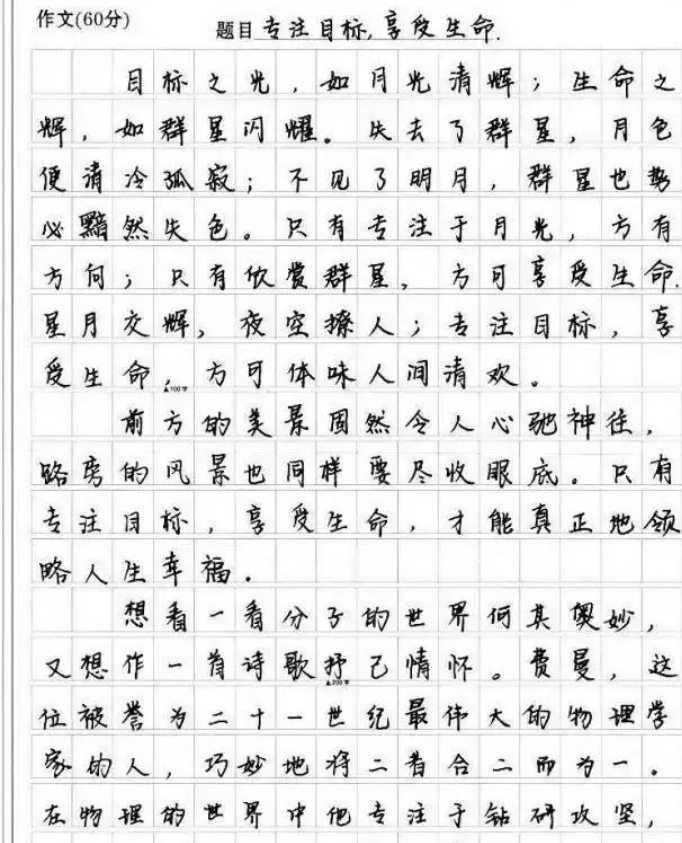 作文(60分)
题目 专注目标,享受生命.
目标之光,如月光清辉;生命之
辉,如群星闪耀。失去了群星,月色
便清冷孤寂;不见了明月,群星也势
必黯然失色。只有专注于月光,方有
方向;只有欣赏群星,方可享受生命.
星月交辉,夜空撩人;专注目标,享
受生命,方可体味人间清欢。
▲100字
前方的美景固然令人心驰神往,
路旁的风景也同样要尽收眼底。只有
专注目标,享受生命,才能真正地领
略人生幸福.
想看一看分子的世界何其奥妙,
又想作一首诗歌抒己情怀。费曼,这
▲200字
位被誉为二十一世纪最伟大的物理学
家的人,巧妙地将二者合二而为一。
在物理的世界中他专注于钻研攻坚,